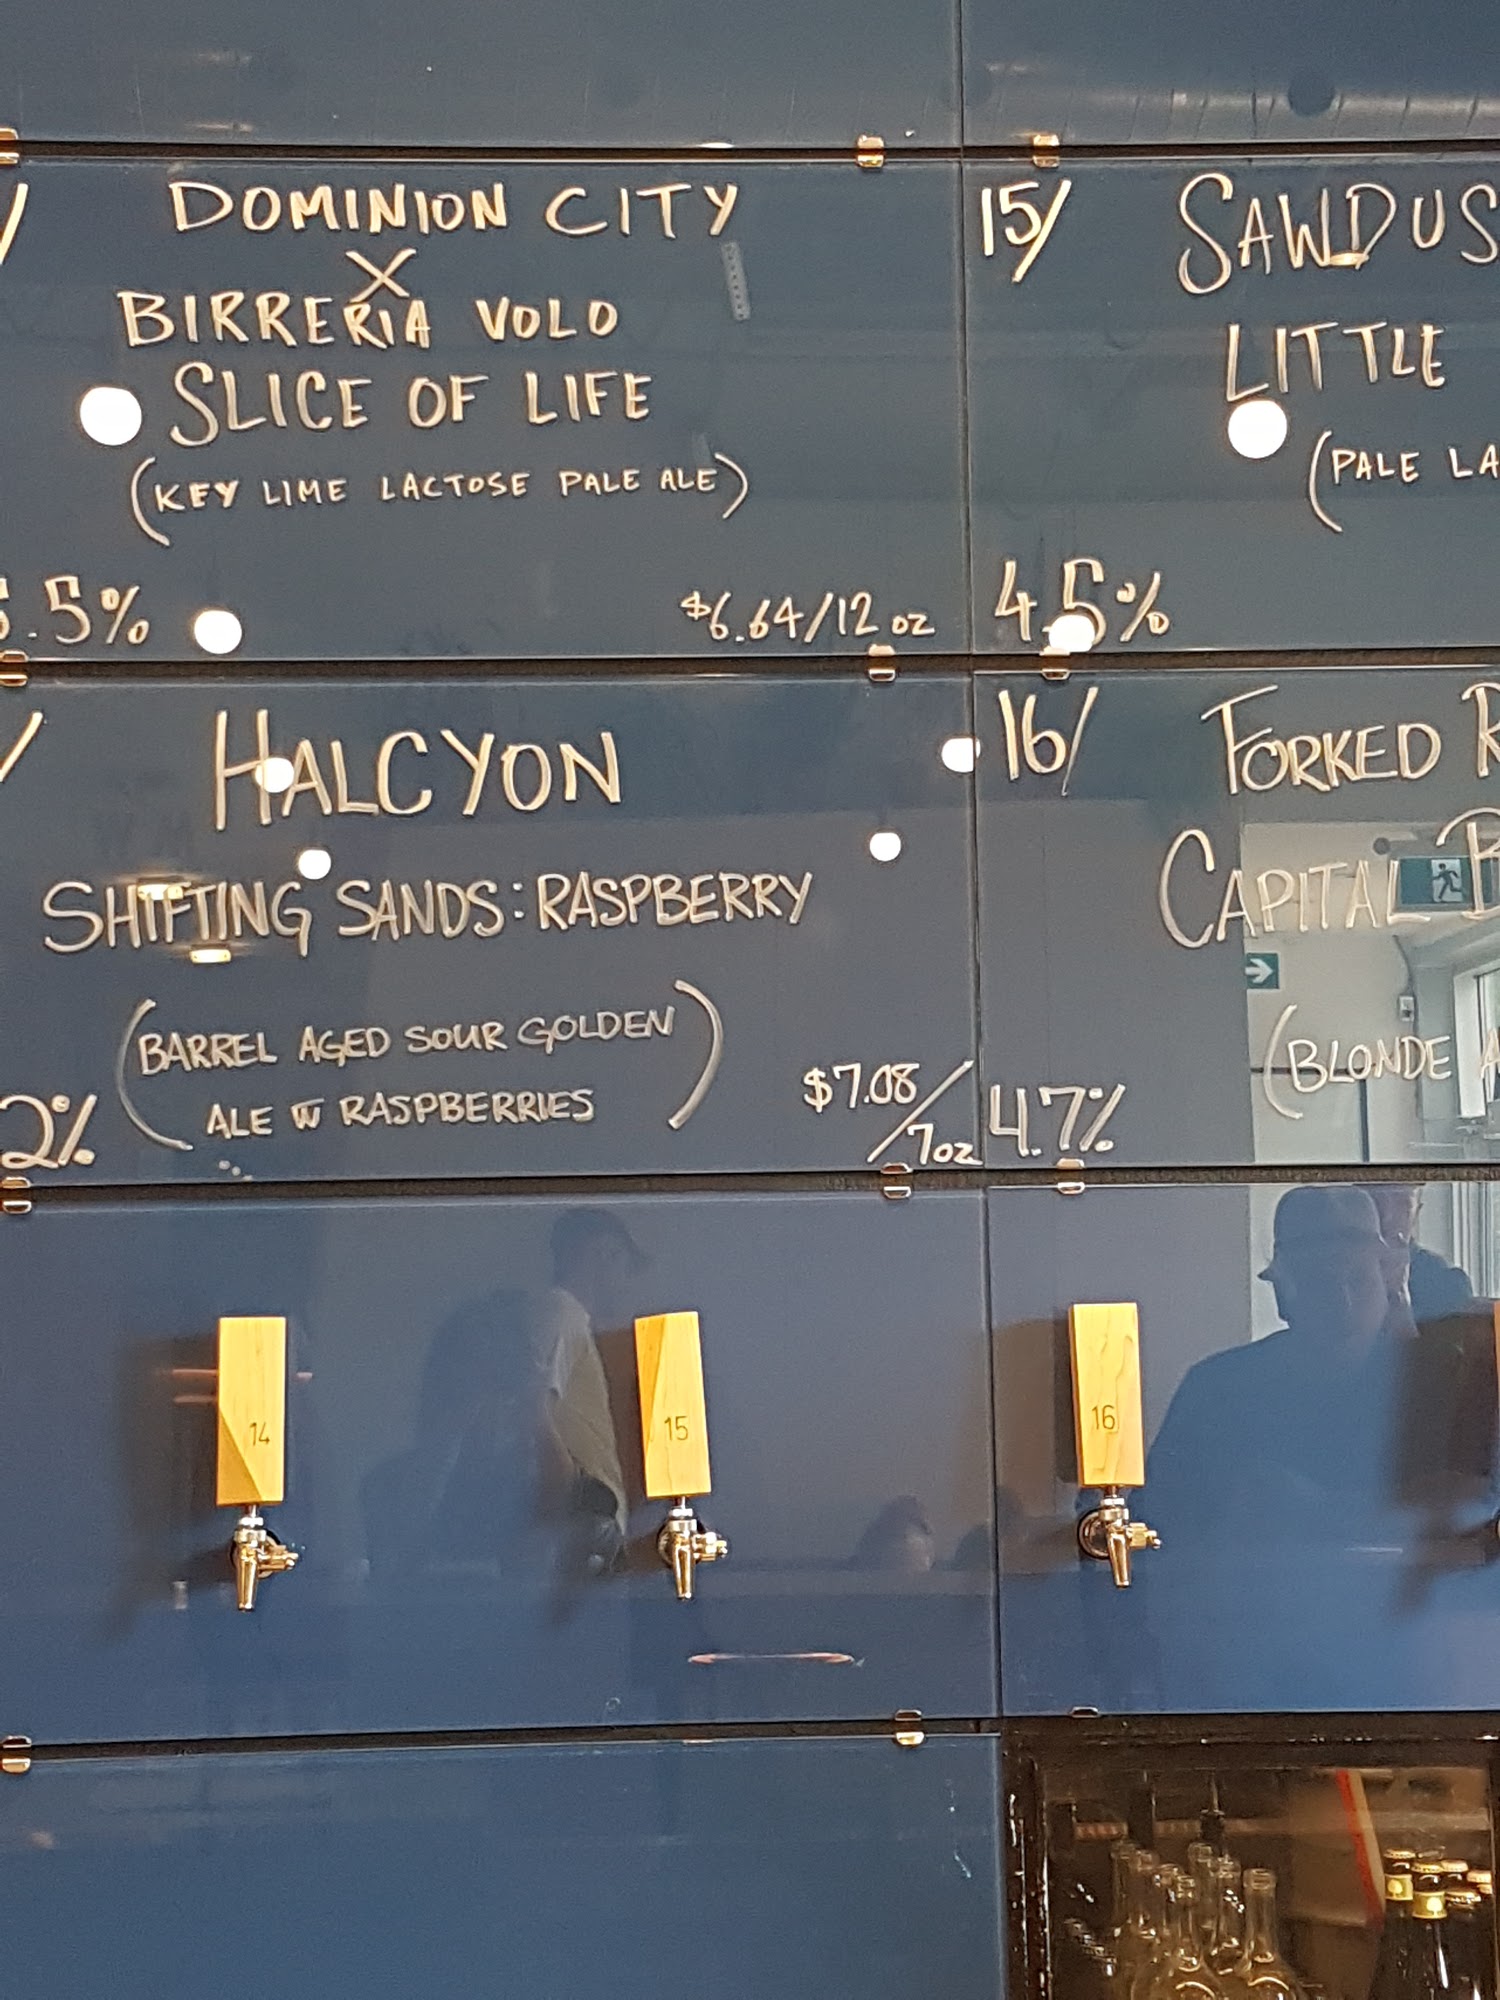 DOMINION CITY
X
BIRRERIA VOLO
SLICE OF LIFE
(KEY LIME LACTOSE PALE ALE)
.5%
$6.64/12oz
15/
SAWDUS
LITTLE
(PALE LA
4.5%
/
HALCYON
SHIFTING SANDS: RASPBERRY
(BARREL AGED SOUR GOLDEN
ALE W RASPBERRIES)
2%
$7.08/
7oz
16/
FORKED R
CAPITAL B
(BLONDE A
4.7%
14
15
16